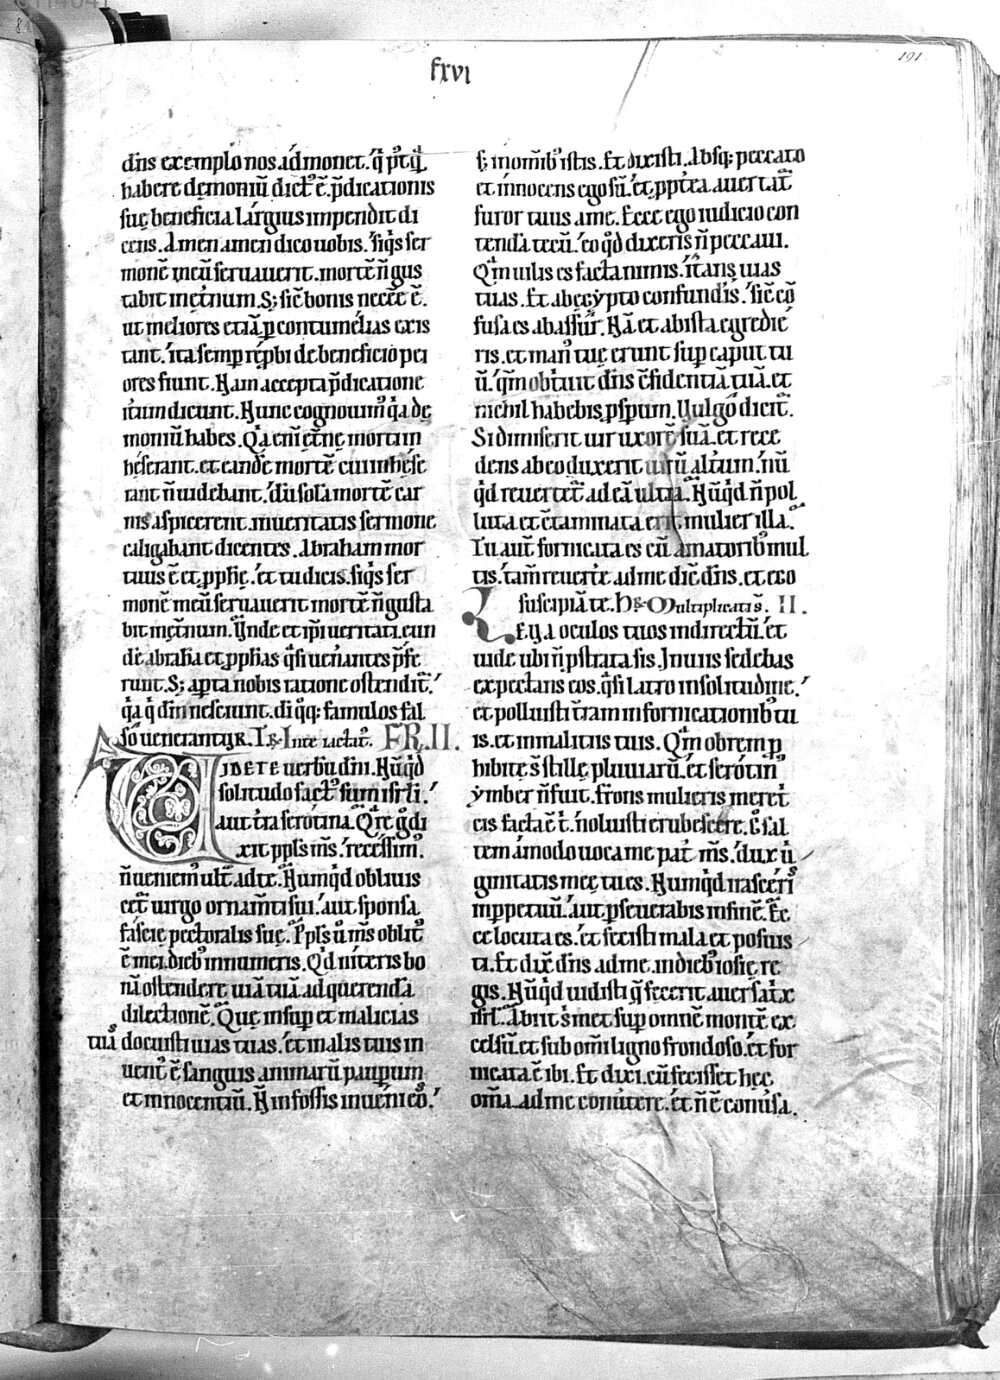 fxvi
191
dn̄s exemplo nos admonet. q̄ p̄t q̄
habere demoniū dict᷒ ē. p̄dicationis
suę beneficia largius impendit di
cens. Amen amen dico uobis. siq̄s ser
monē meū seruauerit. mortē n̄ gus
tabit inęt̄num. S; sic̄ bonis necc̄e ē.
ut meliores etiā ꝑ contumelias exis
tant. ita semꝑ rep̄bi de beneficio pei
ores fiunt. Nam accepta p̄dicatione
it̄um dicunt. Nunc cognouim᷒ q̄a de
moniū habes. Q̄a eni ęt̄nę morti in
heserant. et eandē mortē cui inhese
rant n̄ uidebant. dū solā mortē car
nis aspicerent. in ueritatis sermone
caligabant dicentes. Abraham mor
tuus ē et ꝓphę. et tu dicis. siq̄s ser
monē meū seruauerit mortē n̄ gusta
bit inęt̄num. Vnde et ip̄i ueritati. eun
dē abrahā et ꝓphas q̄si uen̄antes p̄fe
runt. S; aꝑta nobis ratione ostendit̄.
q̄a q̄ dm̄ nesciunt. dī q̄q; famulos fal
so uenerantur. FR. II.
VIDETE uerbū dn̄i. Nūq̄d
solitudo fact᷒ sum isrl̄i.
aut t̄ra serotina. Q̄re g̊ di
xit ppl̄s m̄s. recessim᷒.
n̄ ueniem᷒ ult̄ ad te. Numq̄d obliuis
cet̄ uirgo ornam̄ti sui. aut sponsa
fascię pectoralis suę. Ppl̄s ū m̄s oblit᷒
ē mei. dieb᷒ innumeris. Q̄d niteris bo
nā ostendere uiā tuā ad querendā
dilectionē. Quę insup et malicias
tuas docuisti uias tuas. et in alis tuis in
uent᷒ ē sanguis animarū pauꝑum
et innocentiū. N̄ in fossis inueni eos.
s; in om̄ib᷒ istis. Et dixisti. Absq; peccato
et innocens ego sū. et ꝓpt̄ea auertat̄
furor tuus a me. Ecce ego iudicio con
tendā tecū. eo q̄d dixeris n̄ peccaui.
Q̄m uilis es facta nimis. it̄ans uias
tuas. Et ab egypto confundis. sic̄ cō
fusa es ab assur. Nā et ab ista egredie
ris. et man᷒ tuę erunt suꝑ caput tu
ū. q̄m obtriuit dn̄s c̄fidentiā tuā. et
nichil habebis ꝓspum. Vulgo dicit̄.
Si dimiserit uir uxorē suā. et rece
dens ab eo duxerit uirū alt̄um. nū
q̄d reuertet̄ ad eā ultra. Nūq̄d n̄ pol
luta et c̄taminata erit mulier illa.
Tu aut̄ fornicata es cū amatorib᷒ mul
tis. tam̄ reuert̄e ad me dic̄ dn̄s. et ego
suscipiā te. II.
Leua oculos tuos in directū. et
uide ubi n̄ pstrata sis. In uiis sedebas
expectans eos. q̄si latro in solitudine.
et polluisti t̄ram in fornicationib᷒ tu
is. et in malitiis tuis. Q̄m obrem ꝓ
hibitę s̄ stillę pluuiarū. et serotin᷒
ymber n̄ fuit. frons mulieris meret
cis facta ē t̄. noluisti erubescere. g̊ sal
tem amodo uoca me pat̄ m̄s. dux ū
ginitatis meę tu es. Numq̄d irasceris
in ppetuū. aut pseuerabis in finē. Ec
ce locuta es. et fecisti mala et potuis
ti. Et dix̄ dn̄s ad me. in dieb᷒ iosię re
gis. Nūq̄d uidisti q̄ fecerit auersat̄x
isrl̄. Abiit s̄met sup omnē montē ex
celsū. et sub om̄i ligno frondoso. et for
nicata ē ibi. Et dixi. cū fecisset hęc
om̄a. ad me conūtere. et n̄ ē conūsa.